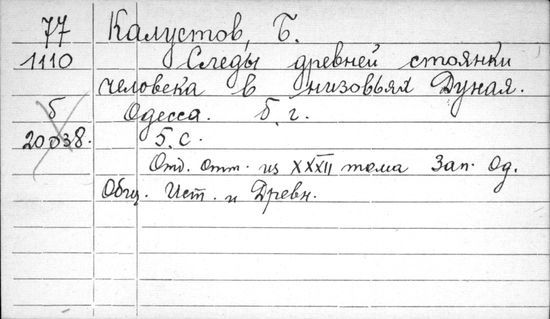 77 Калустов, Б.
1110 Следы древней стоянки
человека в низовьях Дуная.
б Одесса. Б. г.
20038. 5. с.
Отд. отт. из XXXII тома Зап. Од.
Общ. Ист. и Древн.